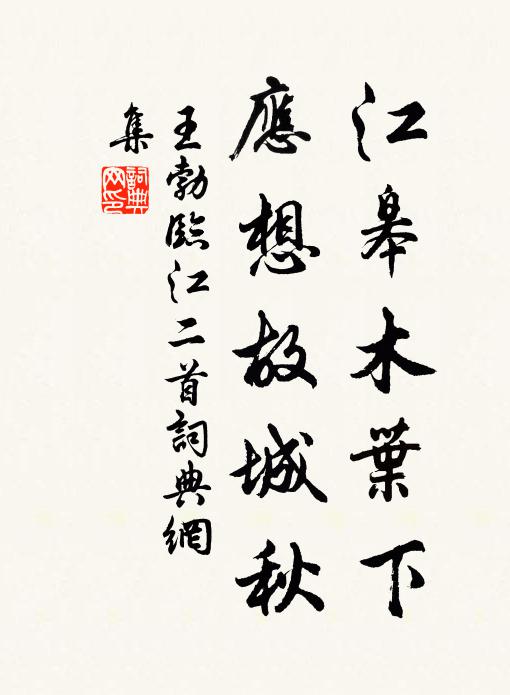 江皋木葉下
應想故城秋
王勃臨江二首詞典網
集
詞典网印